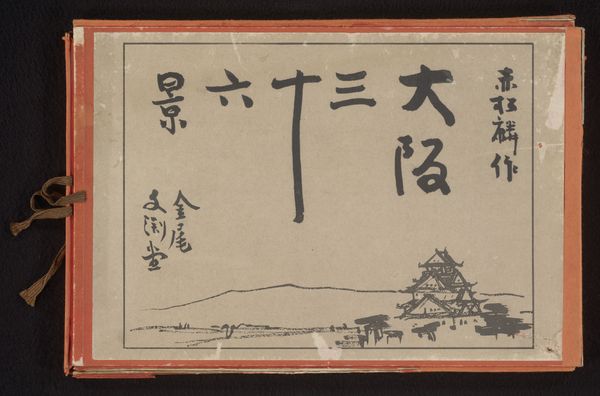 赤松麟作
大阪
三十六景
金尾
文渕堂